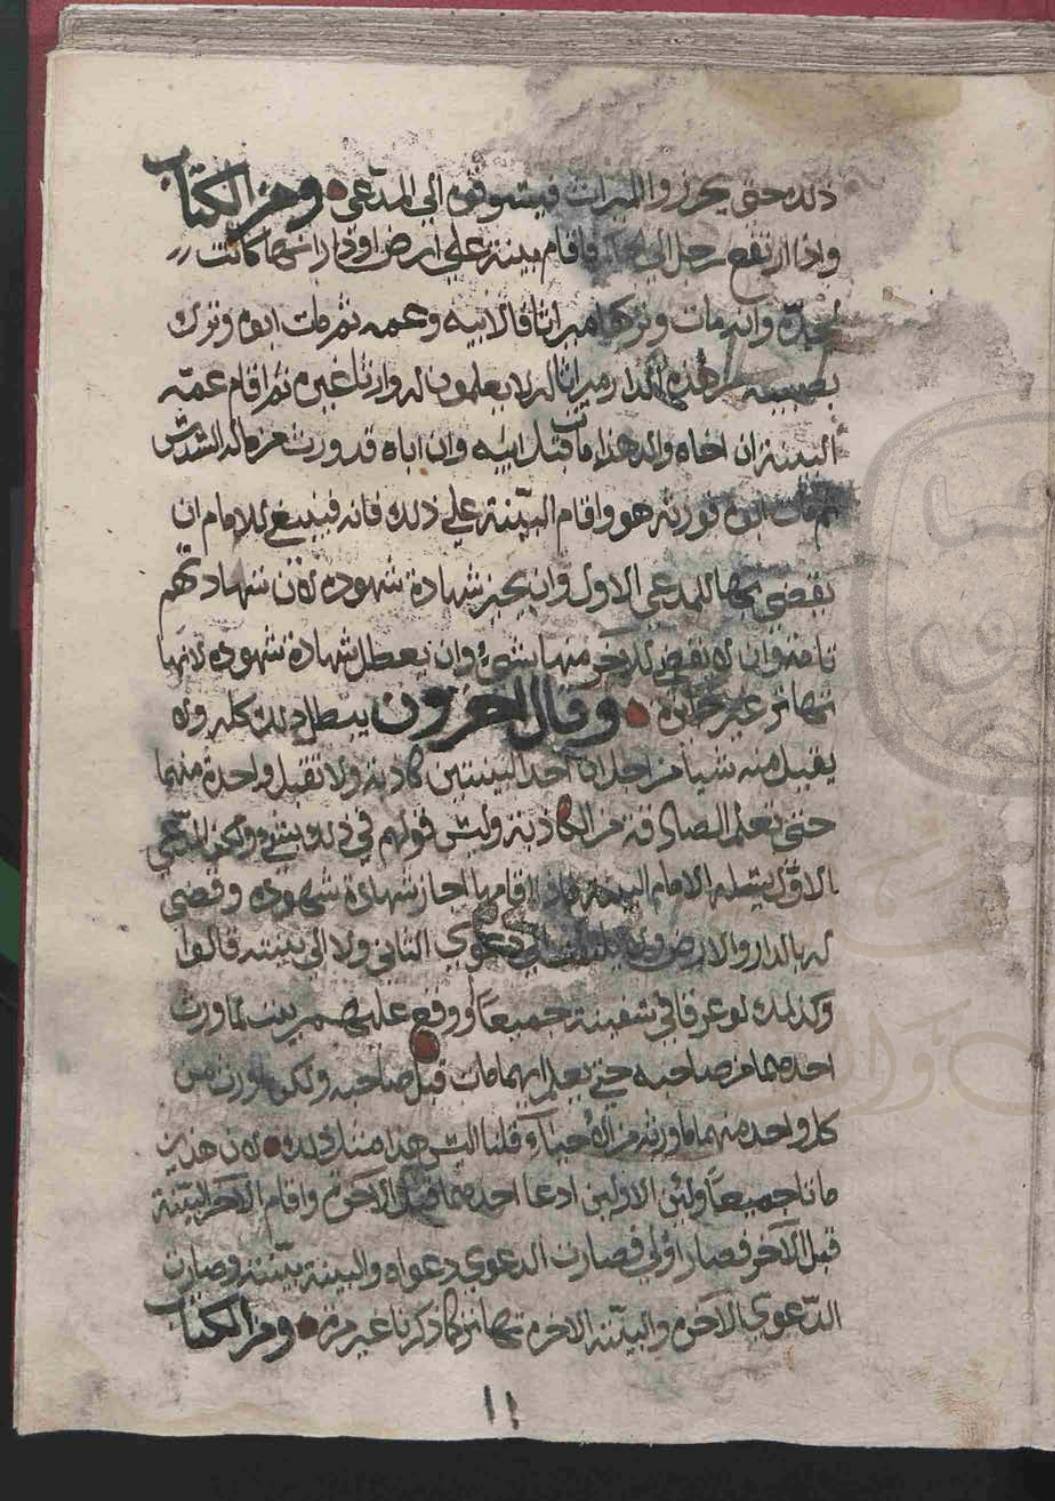 ذلك حتى يحرزوا الميراث فيسوقون الى المدعي ومن الكتاب
واذا ارتفع رجل الى فاقام بينة على ارض او دار انها كانت
لجده وانه مات وتركها ميراثا قال لابيه وعمه ثم مات ابوه وترك
نصيبه من هذه الدار ميراثا له لا يعلمون له وارثا غيره ثم اقام عمّه
البينة ان اخاه والد هذا مات قبل ابيه وان اباه قد ورث من ماله السدس
ثم مات ابوه فورثه هو واقام البيّنة على ذلك فانه فينبغي للامام ان
يقضي بها للمدعي الاول وان يجيز شهادة شهوده لان شهادتهم
تامة وان لا يقضي للآخر منها بشيء وان يعطل شهادة شهوده لانها
تهاتر غير جائزة وقال اخرون يبطل ذلك كله ولا
يقبل منه شيأ من اجل ان احد البينتين كاذبة ولا تقبل واحدة منهما
حتى تعلم الصادقة من الكاذبة وليس قولهم في ذلك بشيء ولكن المدّعي
الاوّل يسله الامام البينة فاذا اقامها اجاز شهادة شهوده وقضى
له بالدار والارض ولا يلتفت الى دعوى الثاني ولا الى بينته قالوا
وكذلك لو غرقا في سفينة جميعاً او وقع عليهم بيت لما ورث
احدهما من صاحبه حتى يعلم ايهما مات قبل صاحبه ولكن يورث من
كل واحد منهما ما ورثه من الاحياء قلنا ليس هذا مثل ذلك لان هذين
ماتا جميعاً ولئن الاولين ادعا احدهما قبل الآخر واقام الآخر البيّنة
قبل الآخر فصار اولى فصارت الدعوى دعواه والبينة بيّنته وصارت
الدّعوى الآخرة والبيّنة الاخرة تهاتر كما ذكرنا غير مرة ومن الكتاب
١١